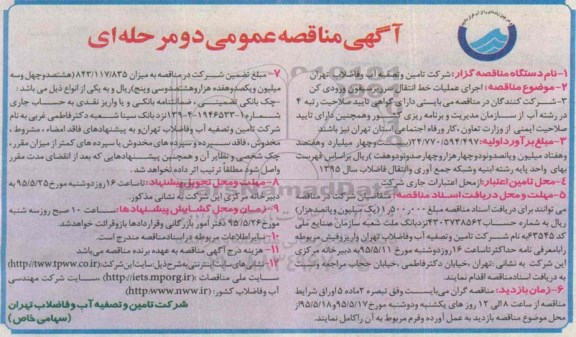 آگهی مناقصه عمومی دو مرحله ای
۱- نام دستگاه مناقصه گزار: شرکت تامین وتصفیه آب وفاضلاب تهران
۲- موضوع مناقصه: اجرای عملیات خط انتقال سرریز سیفون ورودی کن
۳- شرکت کنندگان در مناقصه می بایستی دارای گواهی تایید صلاحیت رتبه ۴
در رشته آب از سازمان مدیریت و برنامه ریزی کشور وهمچنین دارای تایید
صلاحیت ایمنی از وزارت تعاون ،کار ورفاه اجتماعی استان تهران نیز باشند.
۳- مبلغ برآورد اولیه: ۲۴/۷۷۰/۵۹۴/۴۹۷
وهفتاد میلیون وپانصدونودوچهارهزاروچهارصدونودوهفت )ریال براساس فهرست
بهای واحد پایه رشته ابنیه وشبکه جمع آوری وانتقال فاضلاب سال ۱۳۹۵
۴- محل تامین اعتبار: از محل اعتبارات جاری شرکت
۵- مهلت و محل دریافت اسناد مناقصه: متقاضیان شرکت در مناقصه
می توانند برای دریافت اسناد مناقصه مبلغ (یک میلیون وپانصدهزار)
ریال به شماره حساب نزدبانک ملت شعبه سازمان صنایع ملی
کد به نام شرکت تامین وتصفیه آب وفاضلاب تهران واریزوفیش مربوطه
رابامعرفی نامه حداکثر تاساعت ۱۶ روزدوشنبه مورخ ۹۵/۵/۱۱ به دبیرخانه مرکزی
این شرکت به نشانی :تهران ،خیابان دکترفاطمی ،خیابان حجاب مراجعه ونسبت
به دریافت اسنادمناقصه اقدام نمایند.
۶- زمان بازدید: مناقصه گران می بایست وفق تبصره ۲ماده ۵ اوراق شرایط
مناقصه از ساعت ۸ الی ۱۲ روز های یکشنبه ودوشنبه مورخ ۹۵/۵/۱۷و۹۵/۵/۱۸ از
محل موضوع مناقصه بازدید به عمل آورده وفرم مربوط به آن راکامل نمایند.
۷- مبلغ تضمین شرکت در مناقصه به میزان ۸۴۳/۱۱۷/۸۳۵ (هشتصدوچهل وسه
میلیون ویکصدوهفده هزاروهشتصدوسی وپنج)ریال و به یکی از انواع ذیل می باشد :
-چک بانکی تضمینی ، ضمانتنامه بانکی و یا واریز نقدی به حساب جاری
شماره نزد بانک سینا شعبه دکترفاطمی غربی به نام
شرکت تامین وتصفیه آب وفاضلاب تهران و به پیشنهادهای فاقد امضاء ، مشروط ،
مخدوش ، فاقد سپرده و سپرده های مخدوش یا سپرده های کمتر از میزان مقرر،
چک شخصی و نظایر آن و همچنین پیشنهادهایی که بعد از انقضای مدت مقرر
واصل شود مطلقاً ترتیب اثر داده نخواهد شد.
۸- مهلت و محل تحویل پیشنهاد: تاساعت ۱۶ روزدوشنبه مورخ ۹۵/۵/۲۵ به
دبیرخانه مرکزی این شرکت به نشانی مذکور.
۹- زمان ومحل گشایش پیشنهادها: ساعت ۱۰ صبح روز سه شنبه
مورخ ۹۵/۵/۲۶ دفتر امور بازرگانی وقراردادها بازوقرائت خواهدشد.
۱۰- سایر اطلاعات مربوطه در اسنادمناقصه مندرج است.
۱۱- هزینه درج آگهی مناقصه به عهده برنده مناقصه می باشد.
۱۲- نشانی های اینترنتی به شرح ذیل: سایت این شرکت: (http://tww.tpww.co.ir)
سایت ملی مناقصات (http://iets.mporg.ir) سایت شرکت مهندسی
آب وفاضلاب کشور: (http:www.nww.ir)
شرکت تامین و تصفیه آب و فاضلاب تهران
(سهامی خاص)